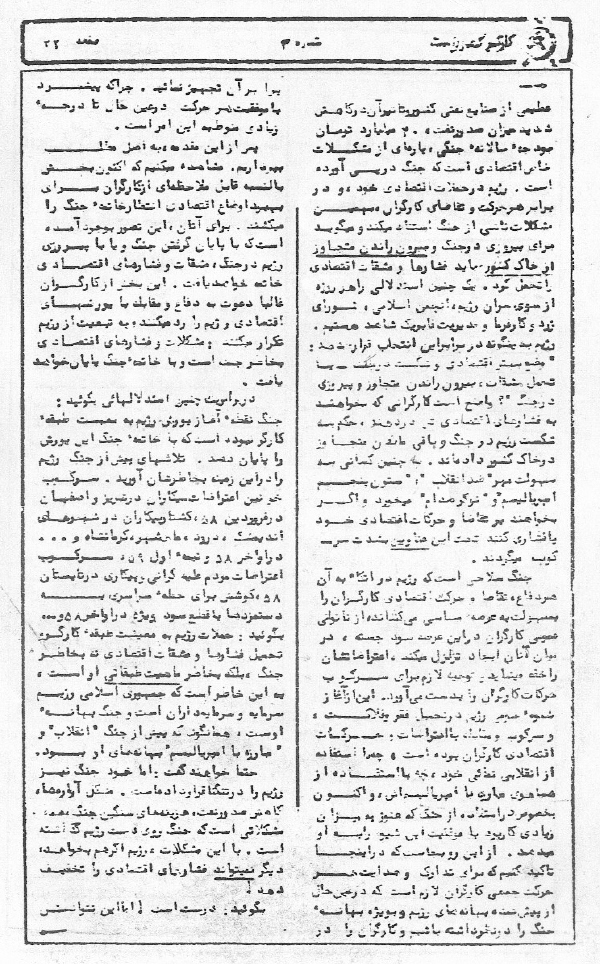 کارگر کمونیست
شماره ۳
صفحه ۲۲
عظیمی از صنایع نفتی کشور و تاثیر آن در کاهش
شدید میزان صدور نفت، ۴۰۰ میلیارد تومان
بودجه سالانه جنگی، پاره‌ای از مشکلات
خاص اقتصادی است که جنگ در پی آورده
است. رژیم در حملات اقتصادی خود، و در
برابر هر حرکت و تقاضای کارگران، به همین
مشکلات ناشی از جنگ استناد میکند و میگوید
برای پیروزی در جنگ و بیرون راندن متجاوز
از خاک کشور باید فشارها و مشقات اقتصادی
را تحمل کرد. یک چنین استدلالی را هر روزه
از سوی سران رژیم، انجمن اسلامی، شورای
زرد و کارفرما و مدیریت فابریک شاهد هستیم.
رژیم بدینگونه در برابر این انتخاب قرار میدهد:
"وضع بهتر اقتصادی و شکست در جنگ - یا
تحمل مشقات، بیرون راندن متجاوز و پیروزی
در جنگ"؟ واضح است کارگرانی که بخواهند
به فشارهای اقتصادی تن در ندهند، حکم به
شکست رژیم در جنگ و باقی ماندن متجاوز
در خاک کشور داده‌اند. به چنین کسانی به
سهولت مهر "ضد انقلاب"، "ستون پنجم
امپریالیسم" و "نوکر صدام" میخورد و اگر
بخواهند بر تقاضا و حرکات اقتصادی خود
پافشاری کنند تحت این عناوین بشدت سر-
کوب میگردند.
جنگ سلاحی است که رژیم در اتکاء به آن
هر دفاع، تقاضا و حرکت اقتصادی کارگران را
بسهولت به عرصه سیاسی می‌کشاند، از ناتوانی
عمومی کارگران در این عرصه سود جسته، در
میان آنان ایجاد تزلزل میکند، اعتراضاتشان
را خفه مینماید و توجیه لازم برای سرکوب
حرکات کارگران را بدست می‌آورد. این از آغاز
شیوه عمومی رژیم در تحمیل فقر و فلاکت،
و سرکوب و مقابله با اعتراضات و حرکات
اقتصادی کارگران بوده است، چه با استفاده
از انقلابی نمائی خود، چه با استفاده از
هیاهوی مبارزه با امپریالیسم‌اش، و اکنون
بخصوص در استفاده از جنگ که هنوز به میزان
زیادی کاربرد با موفقیت این شیوه را به او
میدهد. از این رو بجاست که در اینجا
تاکید کنیم که برای تدارک و هدایت هر
حرکت جمعی کارگران لازم است که در عین حال
از پیش تمامی بهانه‌های رژیم و بویژه بهانه
جنگ را در نظر داشته باشیم و کارگران را در
برابر آن تجهیز نمائیم. چرا که پیشبرد
با موفقیت هر حرکت در عین حال تا درجه
زیادی منوط به این امر است.
پس از این مقدمه، به اصل مطلب
بپردازیم. مشاهده میکنیم که اکنون بخش
بالنسبه قابل ملاحظه‌ای از کارگران برای
بهبود اوضاع اقتصادی انتظار خاتمه جنگ را
میکشند. برای آنان، این تصور بوجود آمده
است که با پایان گرفتن جنگ و یا با پیروزی
رژیم در جنگ، مشقات و فشارهای اقتصادی
خاتمه خواهد یافت. این بخش از کارگران
غالبا دعوت به دفاع و مقابله با یورشهای
اقتصادی رژیم را رد میکنند، و به تبعیت از رژیم
تکرار میکنند: مشکلات و فشارهای اقتصادی
بخاطر جنگ است و با خاتمه جنگ پایان خواهد
یافت.
در برابر یک چنین استدلالهائی بگوئید:
جنگ نقطه آغاز یورش رژیم به معیشت طبقه
کارگر نبوده است که با خاتمه جنگ این یورش
را پایان دهد. تلاشهای پیش از جنگ رژیم
را در این زمینه بخاطرشان آورید. سرکوب
خونین اعتراضات بیکاران در تبریز و اصفهان
در فروردین ۵۸، کشتار بیکاران در شهرهای
اندیمشک، درود، ماهشهر، کرمانشاه و ...
در اواخر ۵۸ و نیمه اول ۵۹، سرکوب
اعتراضات مردم علیه گرانی و بیکاری در تابستان
۵۸، کوشش برای حمله سراسری به
دستمزدها با قطع سود ویژه در اواخر ۵۸ و ...
بگوئید: حملات رژیم به معیشت طبقه کارگر و
تحمیل فشارها و مشقات اقتصادی نه بخاطر
جنگ، بلکه بخاطر ماهیت طبقاتی او است،
به این خاطر است که جمهوری اسلامی رژیم
سرمایه و سرمایه‌داران است و جنگ بهانه
اوست، همانگونه که پیش از جنگ "انقلاب" و
"مبارزه با امپریالیسم" بهانه‌های او بود.
حتما خواهند گفت: اما خود جنگ نیز
رژیم را در تنگنا قرار داده است. مشکل آواره‌ها،
کاهش صدور نفت، هزینه‌های سنگین جنگ، همه
مشکلاتی است که جنگ روی دست رژیم گذاشته
است. با این مشکلات، رژیم اگر هم بخواهد،
دیگر نمیتواند فشارهای اقتصادی را تخفیف
دهد!
بگوئید: درست است! اما این نتوانستن